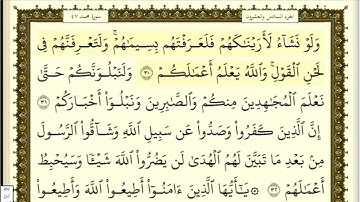 الجزء السادس والعشرون سورة محمد ٤٧
وَلَوْ نَشَآءُ لَأَرَيْنَٰكَهُمْ فَلَعَرَفْتَهُم بِسِيمَٰهُمْ ۚ وَلَتَعْرِفَنَّهُمْ فِى
لَحْنِ ٱلْقَوْلِ ۚ وَٱللَّهُ يَعْلَمُ أَعْمَٰلَكُمْ ٣٠ وَلَنَبْلُوَنَّكُمْ حَتَّىٰ
نَعْلَمَ ٱلْمُجَٰهِدِينَ مِنكُمْ وَٱلصَّٰبِرِينَ وَنَبْلُوَا۟ أَخْبَارَكُمْ ٣١
إِنَّ ٱلَّذِينَ كَفَرُوا۟ وَصَدُّوا۟ عَن سَبِيلِ ٱللَّهِ وَشَآقُّوا۟ ٱلرَّسُولَ
مِنۢ بَعْدِ مَا تَبَيَّنَ لَهُمُ ٱلْهُدَىٰ لَن يَضُرُّوا۟ ٱللَّهَ شَيْـًٔا وَسَيُحْبِطُ
أَعْمَٰلَهُمْ ٣٢ يَٰٓأَيُّهَا ٱلَّذِينَ ءَامَنُوٓا۟ أَطِيعُوا۟ ٱللَّهَ وَأَطِيعُوا۟